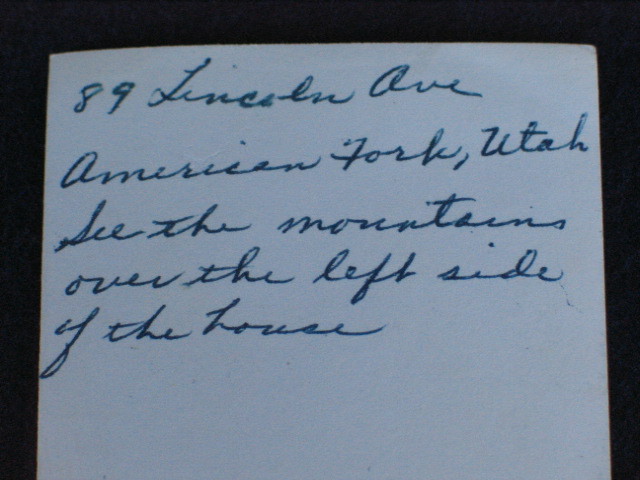 89 Lincoln Ave
American Fork, Utah
See the mountains
over the left side
of the house